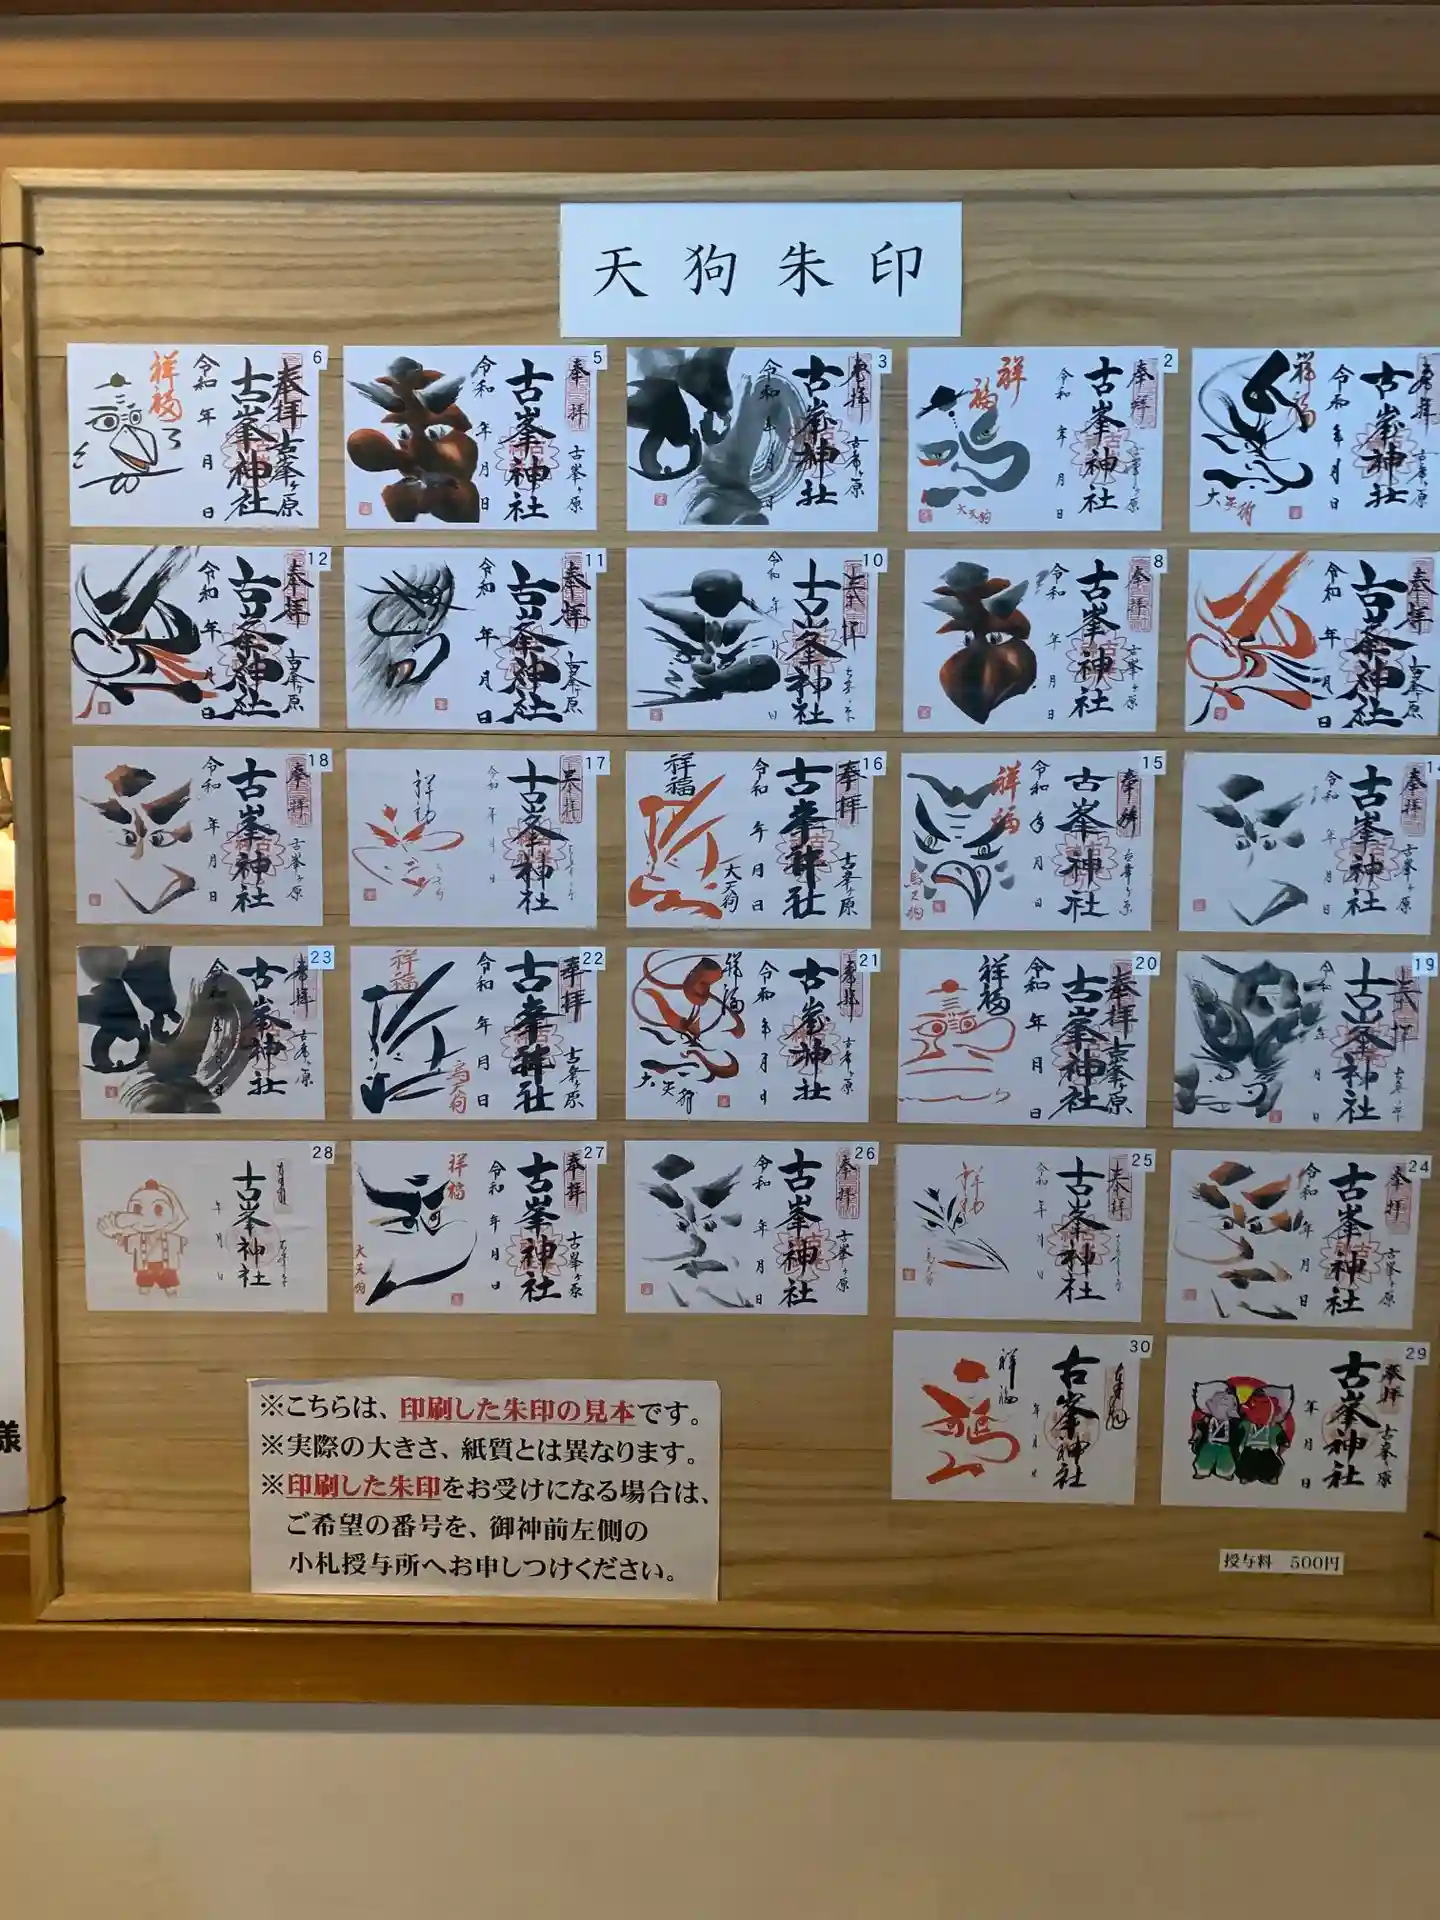 天狗朱印
6
奉拝
古峯ヶ原
古峯神社
令和 年 月 日
祥福
5
奉拝
古峯ヶ原
古峯神社
令和 年 月 日
3
奉拝
古峯ヶ原
古峯神社
令和 年 月 日
2
奉拝
古峯ヶ原
古峯神社
令和 年 月 日
祥福
大天狗
奉拝
古峯ヶ原
古峯神社
令和 年 月 日
祥福
大天狗
12
奉拝
古峯ヶ原
古峯神社
令和 年 月 日
11
奉拝
古峯ヶ原
古峯神社
令和 年 月 日
10
奉拝
古峯神社
令和 年 月 日
8
奉拝
古峯ヶ原
古峯神社
令和 年 月 日
奉拝
古峯ヶ原
古峯神社
令和 年 月 日
18
奉拝
古峯ヶ原
古峯神社
令和 年 月 日
17
奉拝
古峯神社
令和 年 月 日
祥福
16
奉拝
古峯ヶ原
古峯神社
令和 年 月 日
祥福
大天狗
15
奉拝
古峯ヶ原
古峯神社
令和 年 月 日
祥福
烏天狗
奉拝
古峯ヶ原
古峯神社
令和 年 月 日
23
奉拝
古峯ヶ原
古峯神社
令和 年 月 日
22
奉拝
古峯ヶ原
古峯神社
令和 年 月 日
祥福
烏天狗
21
奉拝
古峯ヶ原
古峯神社
令和 年 月 日
祥福
大天狗
20
奉拝
古峯ヶ原
古峯神社
令和 年 月 日
祥福
19
奉拝
古峯神社
令和 年 月 日
28
古峯神社
年 月 日
27
奉拝
古峯ヶ原
古峯神社
令和 年 月 日
祥福
大天狗
26
奉拝
古峯ヶ原
古峯神社
令和 年 月 日
25
奉拝
古峯神社
令和 年 月 日
祥福
24
奉拝
古峯ヶ原
古峯神社
令和 年 月 日
30
古峯神社
年 月 日
祥福
29
奉拝
古峯ヶ原
古峯神社
年 月 日
※こちらは、印刷した朱印の見本です。
※実際の大きさ、紙質とは異なります。
※印刷した朱印をお受けになる場合は、
ご希望の番号を、御神前左側の
小札授与所へお申しつけください。
授与料 500円
様